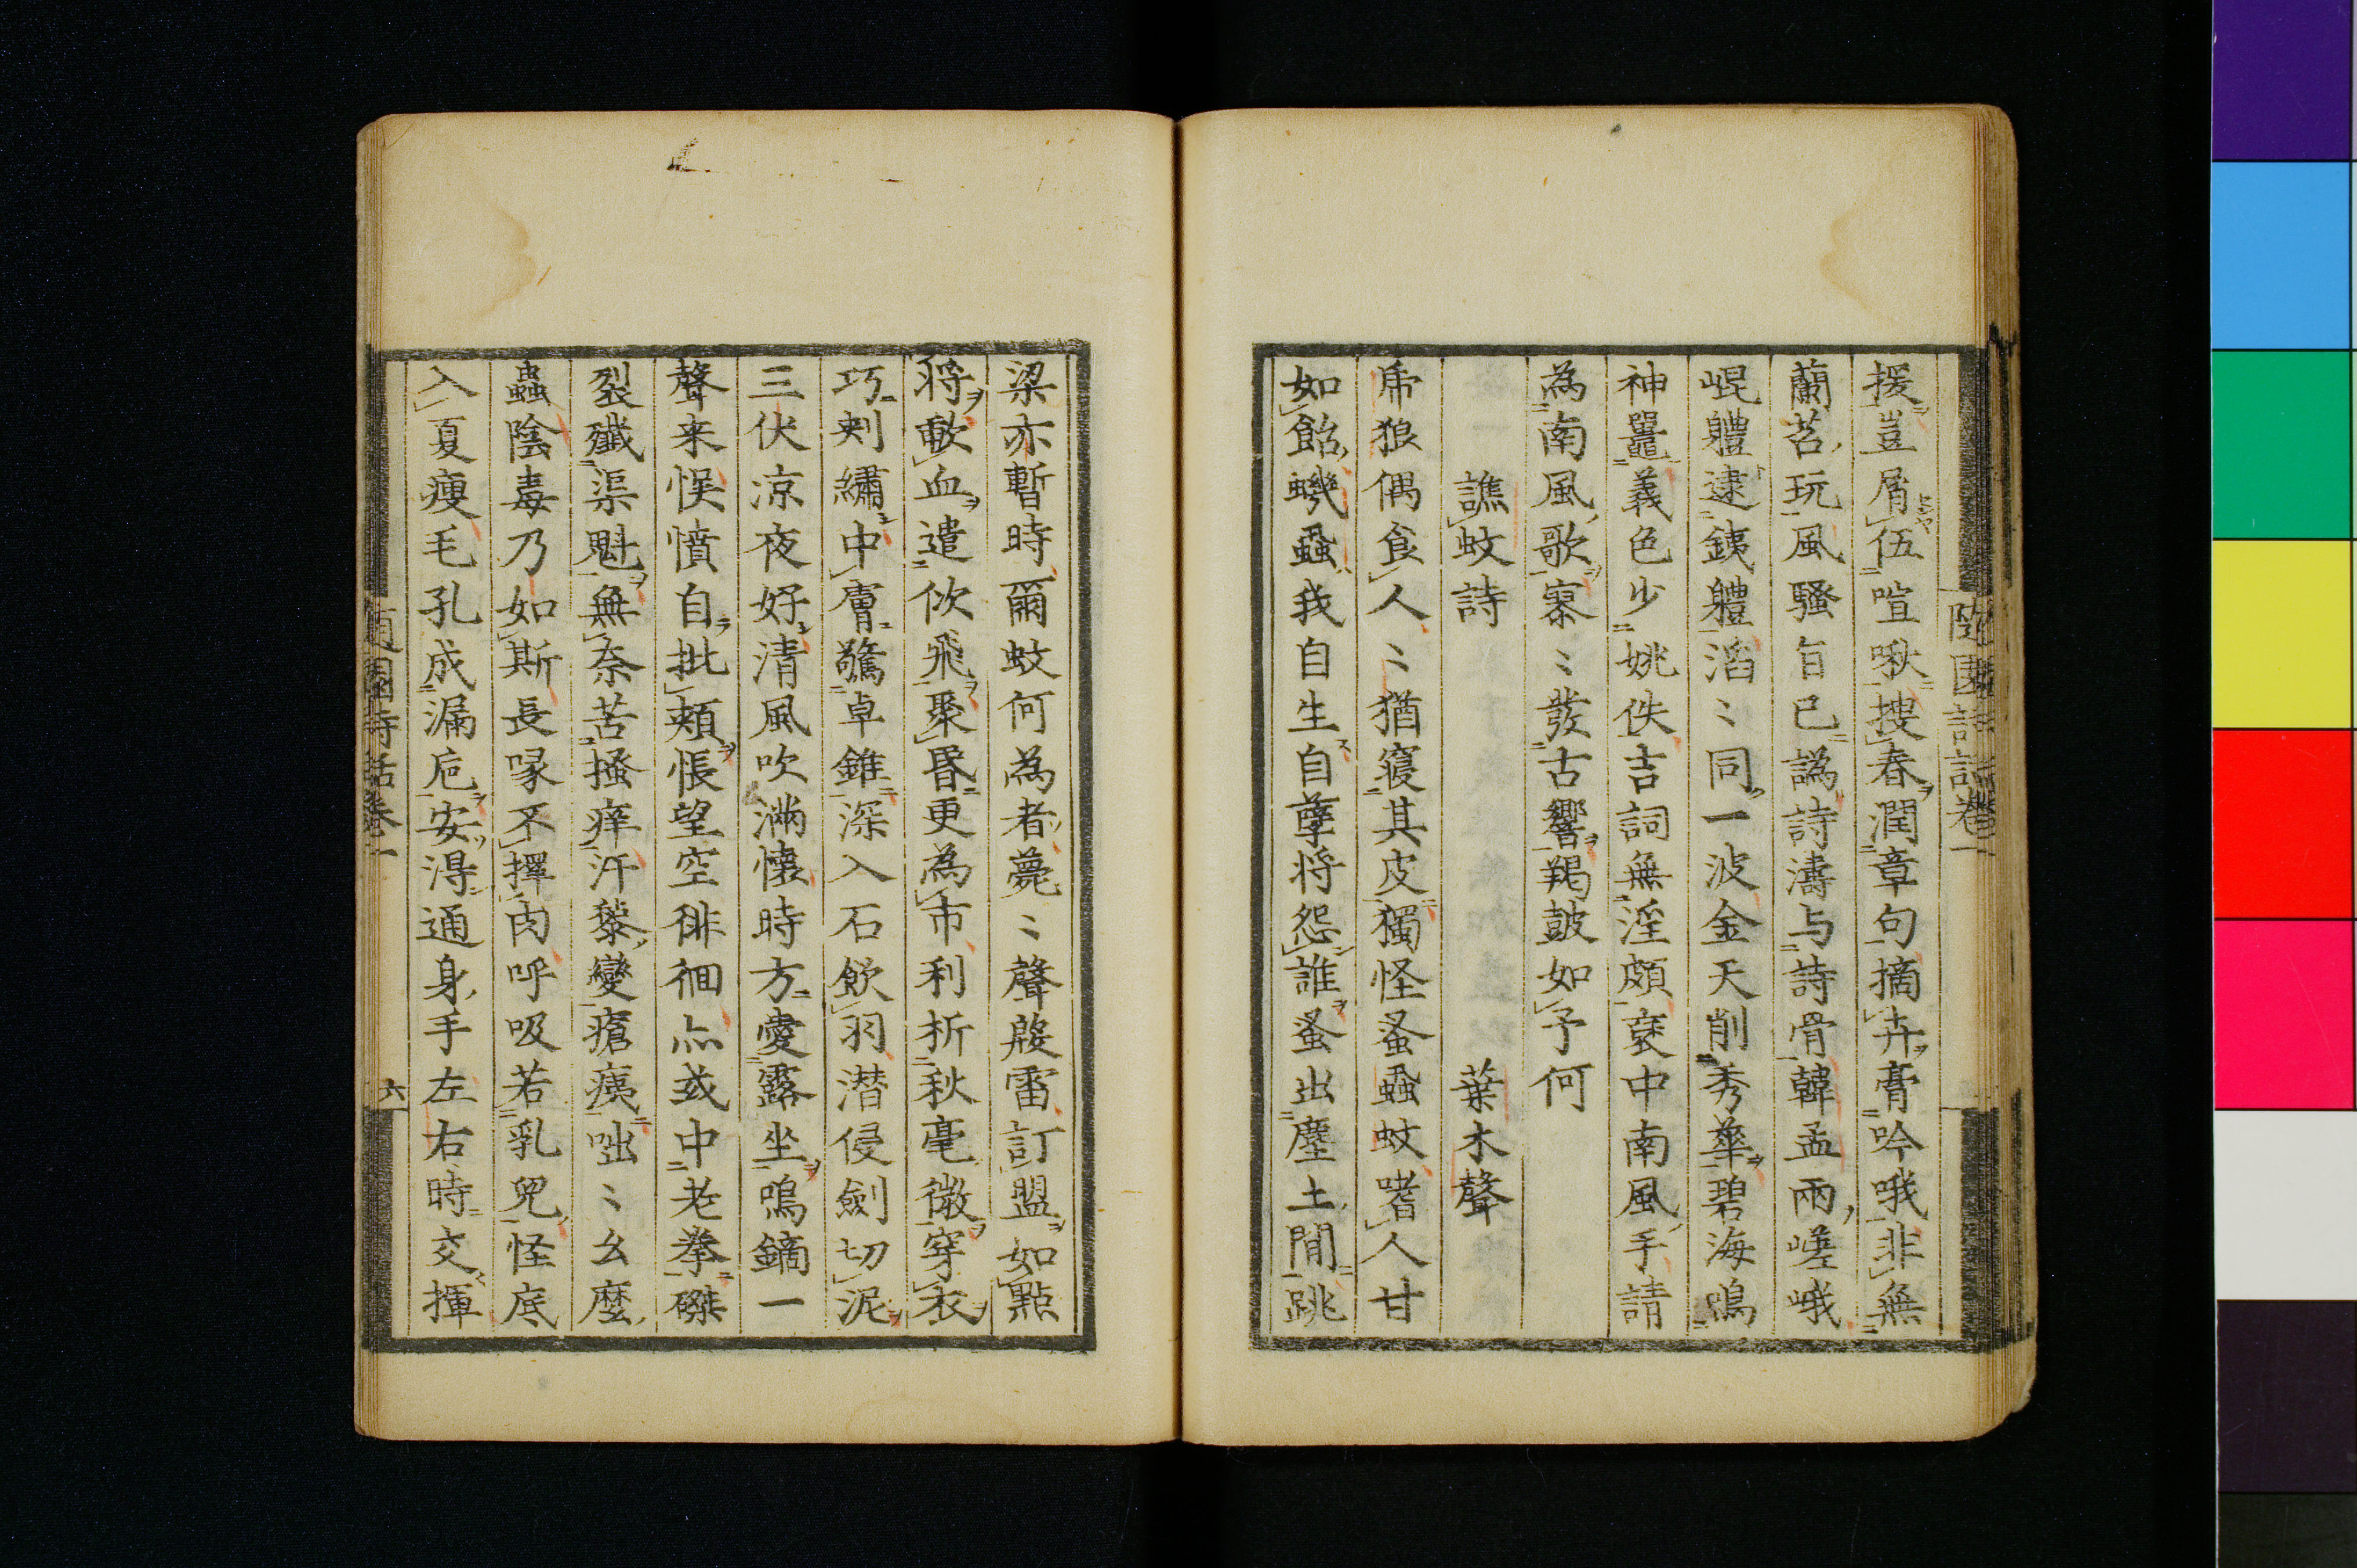 援豈屑伍喧啾摟春潤章句摘卉膏吟哦非無
蘭苕玩風騷旨已譌詩濤与詩骨韓孟兩嵯峨
崐軆逮銕軆滔〻同一波金天削秀華碧海鳴
神鼉義色少姚佚吉詞無淫頗褒中南風手請
為南風歌寡〻發古響羯鼓如予何
譙蚊詩 葉木聲
虎狼偶食人〻猶寢其皮獨怪蚤蝨蚊嗜人甘
如飴蟣蝨我自生自孽将怨誰蚤出塵土間跳
梁亦暫時爾蚊何為者薨〻聲殷雷訂盟如點
将歃血遣佽飛聚昏更為市利析秋毫微穿衣
巧刺繡中膚驚卓錐深入石飲羽潜侵劍切泥
三伏凉夜好清風吹滿懐時方愛露坐鳴鏑一
聲来悞憤自批頬悵望空徘徊亦或中老拳磔
裂殲渠魁無奈苦搔痒汗黎變瘡痍咄〻幺麼
蟲陰毒乃如斯長喙不擇肉呼吸若乳兒怪底
入夏瘦毛孔成漏巵安得通身手左右時交揮
詩話卷一
六